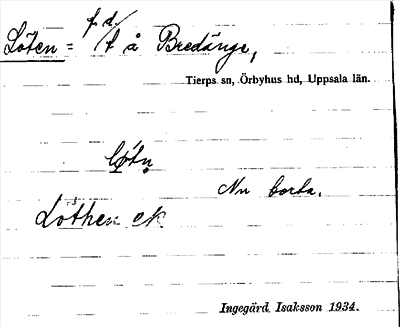 f.d.
Löten = /t å Bredänge,
Tierps sn, Örbyhus hd, Uppsala län.
løtn
Nu borta.
Löthen ek.
Ingegärd Isaksson 1934.